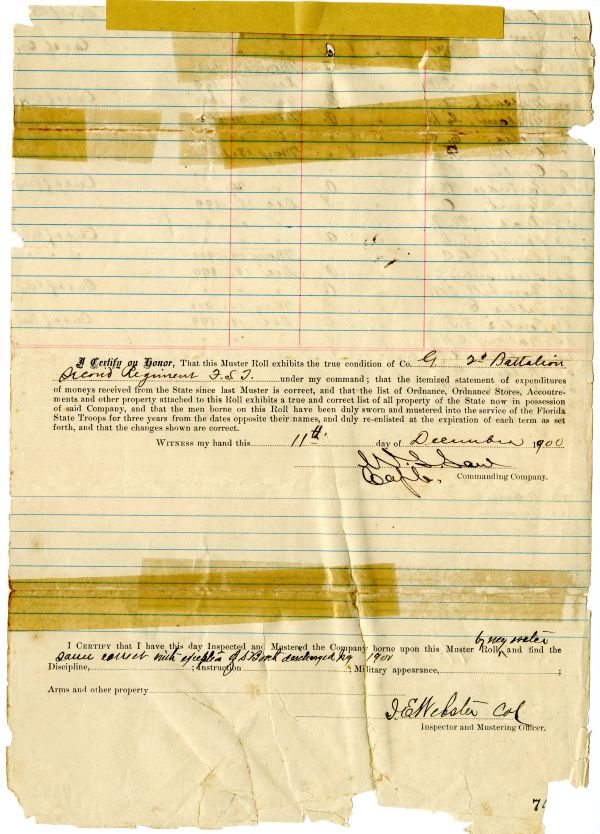 I Certify on Honor, That this Muster Roll exhibits the true condition of Co. G 2d Battalion
Second Regiment F.S.T. under my command; that the itemized statement of expenditures
of moneys received from the State since last Muster is correct, and that the list of Ordnance, Ordnance Stores, Accoutre-
ments and other property attached to this Roll exhibits a true and correct list of all property of the State now in possession
of said Company, and that the men borne on this Roll have been duly sworn and mustered into the service of the Florida
State Troops for three years from the dates opposite their names, and duly re-enlisted at the expiration of each term as set
forth, and that the changes shown are correct.
WITNESS my hand this 11th. day of December 1900
Capt. Commanding Company.
by my
I CERTIFY that I have this day Inspected and Mustered the Company borne upon this Muster Roll, and find the
same correct with exception of discharged 1900
Discipline, ; Instruction ; Military appearance, ;
Arms and other property
J.E. Webster Col
Inspector and Mustering Officer.